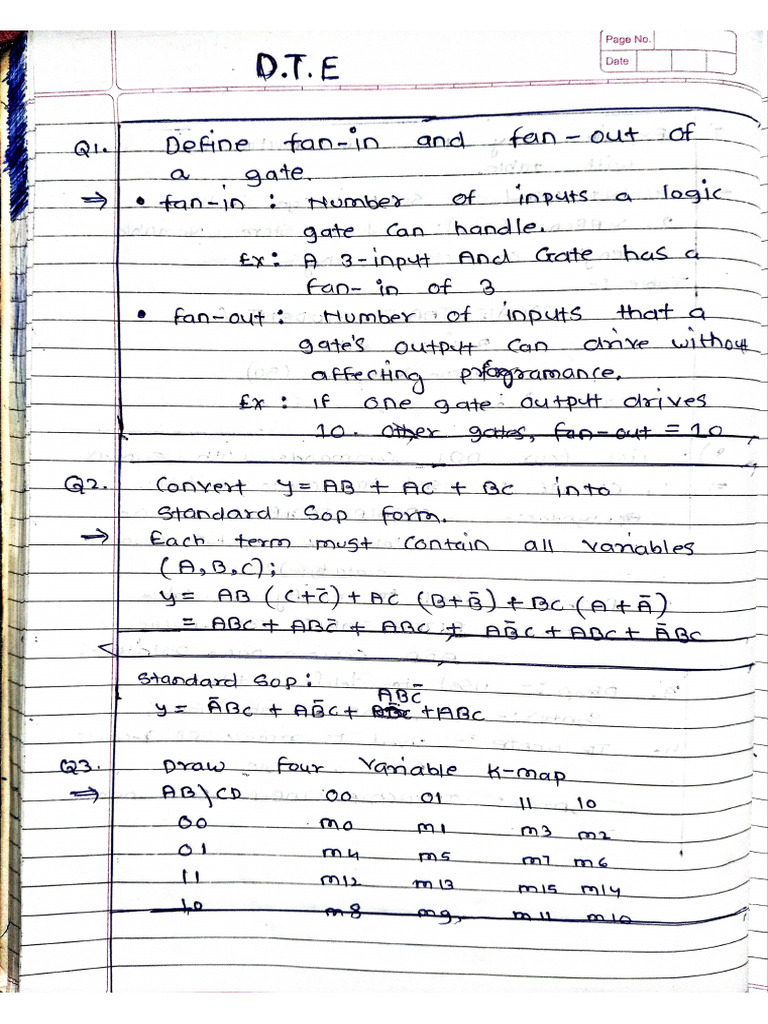 Page No.
Date
D.T.E
Q1. Define fan-in and fan-out of
a gate.
⇒ • fan-in : Number of inputs a logic
gate can handle.
Ex: A 3-input And Gate has a
fan-in of 3
• fan-out : Number of inputs that a
gate's output can drive without
affecting
Ex : if one gate output drives
10. other gates, fan-out = 10
Q2. Convert y = AB + AC + BC into
Standard Sop form.
⇒ Each term must contain all variables
(A, B, C);
y = AB (C+C̄) + AC (B+B̄) + BC (A+Ā)
= ABC + ABC̄ + ABC + AB̄C + ABC + ĀBC
Standard Sop:
ABC̄
y = ĀBC + AB̄C + +ABC
Q3. Draw four variable K-map
⇒ AB\CD 00 01 11 10
00 m0 m1 m3 m2
01 m4 m5 m7 m6
11 m12 m13 m15 m14
10 m8 m9, m11 m10